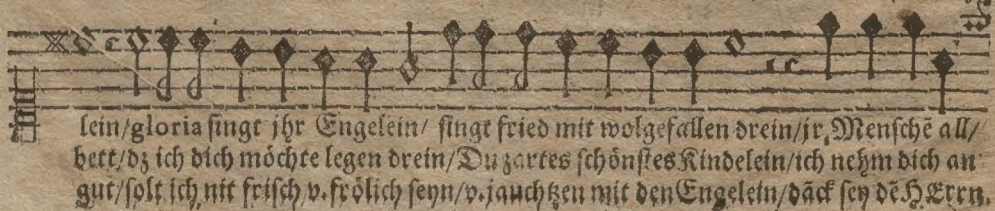 lein/gloria singt jhr Engelein/ singt fried mit wolgefallen drein/jr Menschē all/
bett/dz ich dich möchte legen drein/Du zartes schönstes Kindelein/ich nehm dich an
gut/solt ich nit frisch v. frölich seyn/v. jauchtzen mit den Engelein/dāck sey dē HErrn